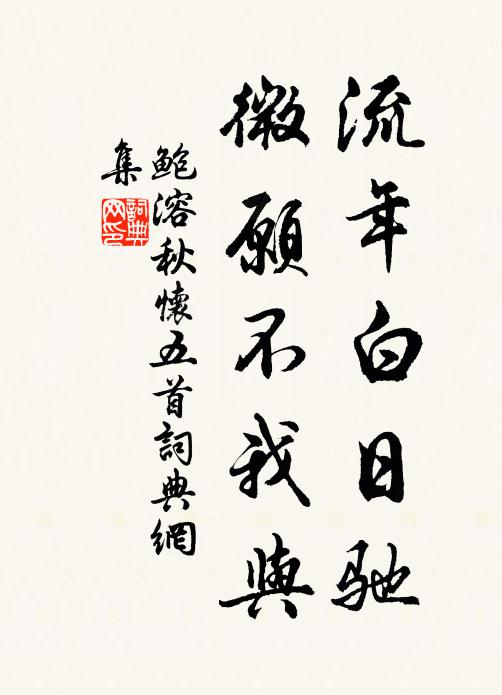 流年白日驰
微願不我與
鲍溶秋懷五首詞典網
集
詞典
网印